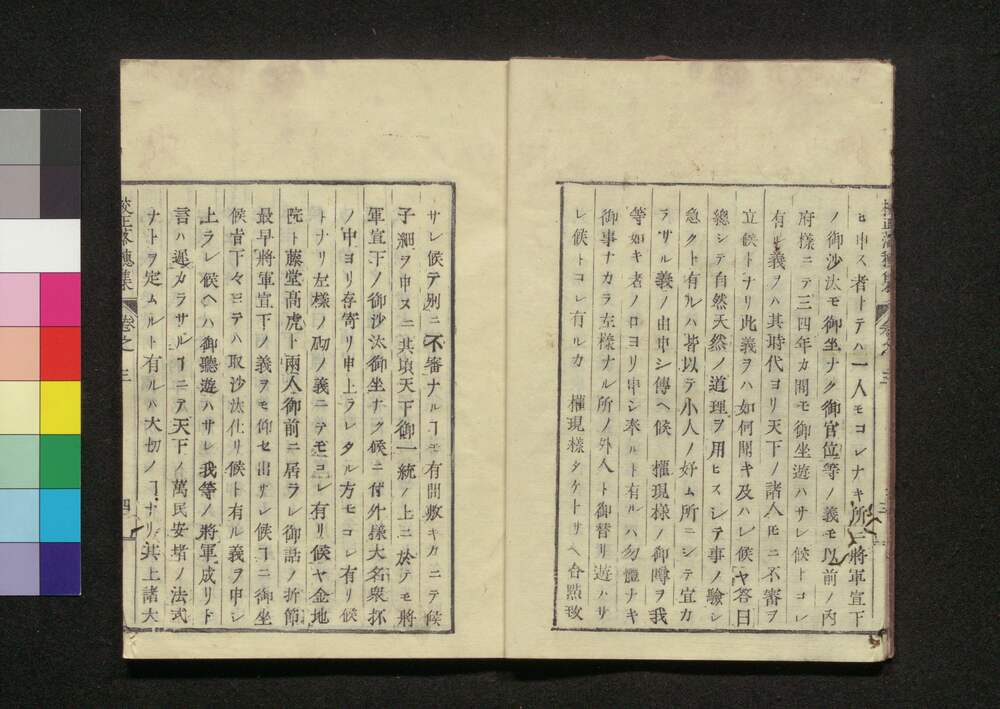 ヒ申ス者トテハ一人モコレナキ所ニ將軍宣下
ノ御沙汰モ御坐ナク御官位等ノ義モ以前ノ内
府樣ニテ三四年カ間モ御坐遊ハサレ候トコレ
有ル義ヲハ其時代ヨリ天下ノ諸人ヒニ不審ヲ
立候トナリ此義ヲハ如何聞キ及ハレ候ヤ答曰
總シテ自然天然ノ道理ヲ用ヒスシテ事ノ驗シ
急クト有ルハ皆以テ小人ノ好ム所ニシテ宜カ
ラサル義ノ由申シ傳ヘ候 權現樣ノ御噂ヲ我
等如キ者ノ口ヨリ申シ奉ルト有ルハ勿體ナキ
御事ナカラ左樣ナル所ノ外人ト御替リ遊ハサ
レ候トコレ有ルカ 權現樣タケトサヘ合點致
サレ候テ別ニ不審ナルヿモ有間敷キカニテ候
子細ヲ申スニ其頃天下御一統ノ上ニ於テモ將
軍宣下ノ御沙汰御坐ナク候ニ付外樣大名衆抔
ノ中ヨリ存寄リ申上ラレタル方モコレ有リ候
トナリ左樣ノ砌ノ義ニテモコレ有リ候ヤ金地
院ト藤堂髙虎ト兩人御前ニ居ラレ御話ノ折節
最早將軍宣下ノ義ヲモ仰セ出サレ候ヿニ御坐
候旨下々ニテハ取沙汰仕リ候ト有ル義ヲ申シ
上ラレ候ヘハ御聽遊ハサレ我等ノ將軍成リト
言ハ遲カラサルヿニテ天下ノ萬民安堵ノ法式
ナトヲ定ムルト有ルハ大切ノヿナリ其上諸大
校正落穗集 卷之三 四